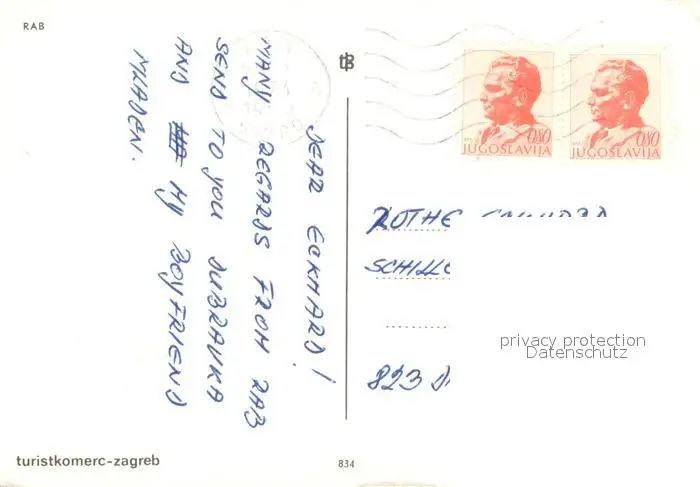 RAB
DEAR ECKHARD!
MANY REGARDS FROM RAB
SEND TO YOU DUBRAVKA
AND MY BOYFRIEND
MLADEN.
0,80
JUGOSLAVIJA
0,80
JUGOSLAVIJA
ROTHE
SCHILL
823
privacy protection
Datenschutz
turistkomerc-zagreb
834